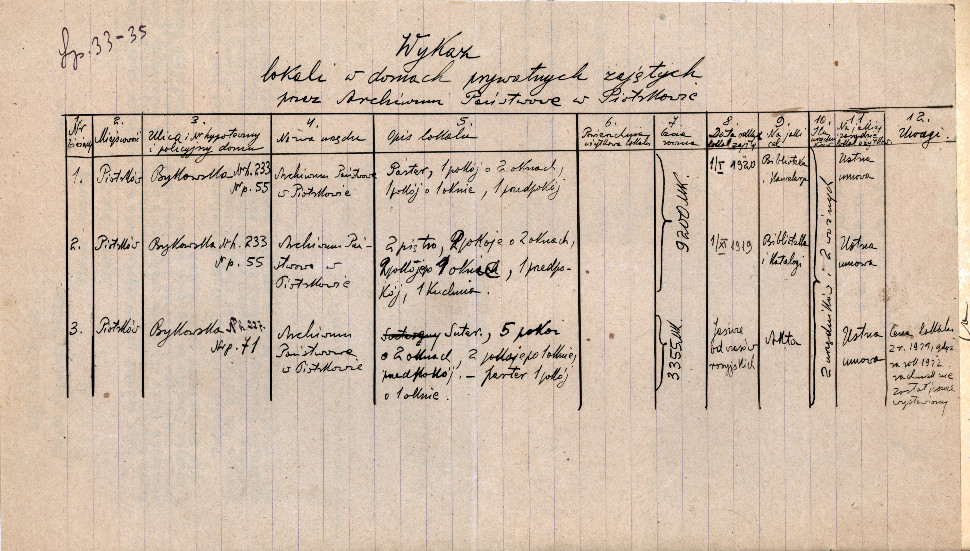 fp. 33-35
Wykaz
lokali w domach prywatnych zajętych
przez Archiwum Państwowe w Piotrkowie
1. 2. 3. 4. 5. 6. 7. 8. 9. 10. 11. 12.
Nr Miejscowość Ulica i № hypoteczny i policyjny domu Nazwa urzędu Opis lokalu Powierzchnia użytkowa lokalu Cena roczna Data lokal zajęty Na jaki cel Ilu Na jakiej zasadzie lokal Uwagi.
1. Piotrków Bykowska № h. 233
№ p. 55
Archiwum Państwowe
w Piotrkowie
Parter, 1 pokój o 2 oknach,
1 pokój o 1 oknie, 1 przedpokój
1/I 1920
Biblioteka
i Kancelaria
Ustna
umowa
2. Piotrków Bykowska № h. 233
№ p. 55
Archiwum Pań-
stwowe w
Piotrkowie
2 piętro, 2 pokoje o 2 oknach,
1 przedpo-
kój, 1 kuchnia.
9200 MK.
1/XI 1919
Biblioteka
i Katalogi
2 urzędników i 2 woźnych
Ustna
umowa
3. Piotrków Bykowska № h. 227.
№ p. 71
Archiwum
Państwowe
w Piotrkowie
Suter., 5 pokoi
o 2 oknach, 2 pokoje po 1 oknie,
przedpokój. – parter 1 pokój
o 1 oknie.
3355 MK.
Jeszcze
od czasów
rosyjskich
Akta
Ustna
umowa
Cena lokalu
z r. 1921, gdyż
za rok 1922
rachunek nie
został jeszcze
wystawiony